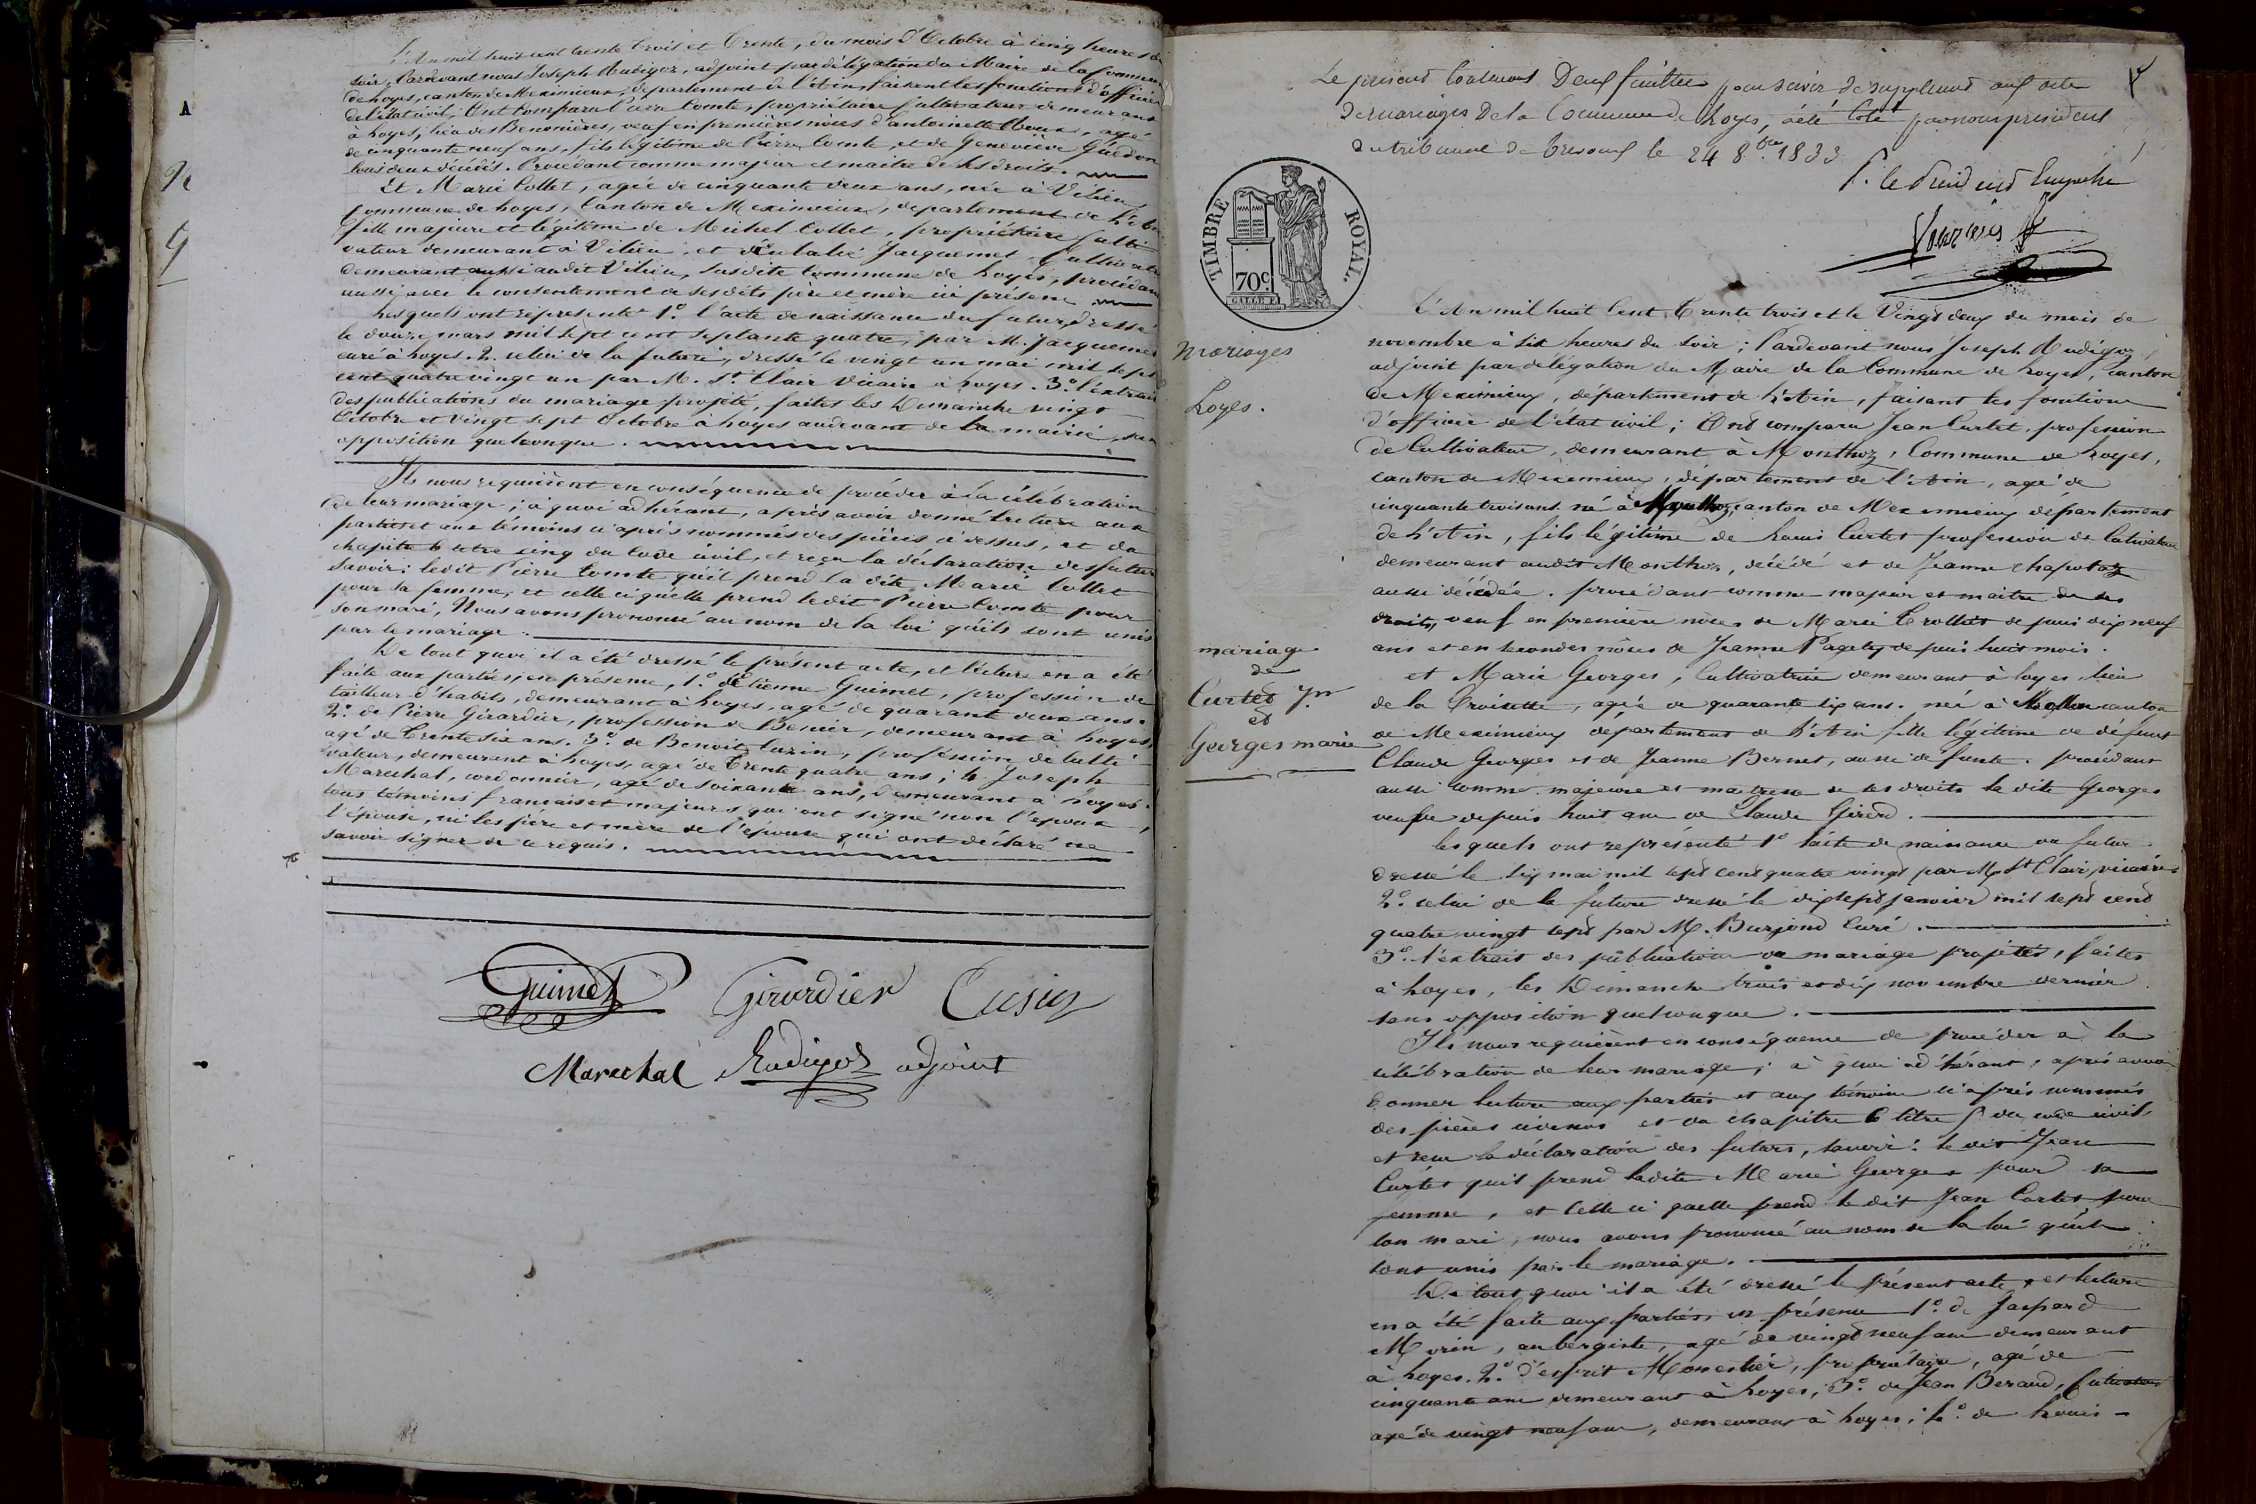 L'An mil huit cent trente trois et trente, du mois d'Octobre à cinq heures du
soir, Pardevant nous Joseph Audigoz, adjoint par délégation du Maire de la Commune
de Loyes, canton de Meximieux, département de l'Ain, faisant les fonctions d'officier
de l'état civil, Ont Comparu Pierre Comte, propriétaire cultivateur demeurant
à Loyes, lieu des Benonières, veuf en premières nôces d'antoinette agé
de cinquante neuf ans, fils légitime de Pierre Comte, et de Geneviève Guédon
tous deux décédés. Procédant comme majeur et maitre de ses droits.
Et Marie Collet, agée de cinquante deux ans, née à Vilieu
Commune de Loyes, Canton de Meximieux, département de l'Ain
fille majeure et légitime de Michel Collet, propriétaire Culti
vateur demeurant à Vilieu, et d'Eulalie Jacquemet, Cultivatr
demeurant aussi audit Vilieu, susdite Commune de Loyes, procédan
aussi avec le consentement de ses dits père et mère ici présens
Lesquels ont représenté 1.º l'acte de naissance du futur, dressé
le douze mars mil sept cent septante quatre, par M. Jacquemet
curé à Loyes. 2. celui de la future, dressé le vingt un mai mil sept
cent quatre vingt un par M. St. Clair Vicaire à Loyes. 3.º l'extrait
des publications du mariage projeté, faites les Dimanche vingt
Octobre et vingt sept Octobre à Loyes audevant de la mairie, san
opposition quelconque.
Ils nous requièrent en conséquence de procéder à la célébration
de leur mariage ; à quoi adhérant, après avoir donné lecture aux
parties et aux témoins ci après nommés des pièces ci dessus, et du
chapitre 6 titre cinq du Code civil, et reçu la déclaration des futurs
savoir : ledit Pierre Comte qu'il prend la dite Marie Collet
pour sa femme, et celle ci qu'elle prend ledit Pierre Comte pour
son mari, Nous avons prononcé au nom de la loi qu'ils sont unis
par le mariage.
De tout quoi il a été dressé le présent acte, et lecture en a été
faite aux parties, en présence, 1.º d'Etienne Guimet, profession de
tailleur d'habits, demeurant à Loyes, agé de quarant deux ans.
2.º de Pierre Girardier, profession de Benier, demeurant à Loyes,
agé de trente six ans. 3.º de Benoit Cuzin, profession de Culti
vateur, demeurant à Loyes, agé de trente quatre ans ; 4 Joseph
Marechal, cordonnier, agé de soixante ans, demeurant à Loyes.
tous témoins français et majeurs qui ont signé non l'epoux,
l'épouse, ni les père et mère de l'épouse qui ont déclaré ne
savoir signer de ce requis.
Guimet Girardier Cusin
Marechal Audigoz adjoint
Le présent Contenant Deux feuilles pour servir de supplément aux acte
De mariages De la Commune de Loyes, a été Coté par nous president
du tribunal de Trevoux le 24 8.bre 1833
P. le Président
TIMBRE ROYAL.
70c.
L'An mil huit Cent Trente trois et le Vingt deux du mois de
novembre à six heures du soir ; Pardevant nous Joseph Audigoz,
adjoint par délégation du Maire de la Commune de Loyes, canton
de Meximieux, département de l'Ain, faisant les fonctions
d'officier de l'état civil ; Ont comparu Jean Curtet, profession
de Cultivateur, demeurant à Monthoz, Commune de Loyes,
canton de Meximieux, département de l'Ain, agé de
cinquante trois ans né à Monthoz, canton de Meximieux département
de l'Ain, fils légitime de Louis Curtet profession de Cultivateur
demeurant audit Monthoz, décédé et de Jeanne Chapotaz
aussi décédée. procédant comme majeur et maitre de ses
droits, veuf en première nôces de Marie Trolliet depuis dix neuf
ans et en secondes nôces de Jeanne Pagety depuis huit mois.
et Marie Georges, Cultivatrice demeurant à Loyes, lieu
de la Croisette, agée de quarante six ans. née à Mollon canton
de Meximieux département de l'Ain fille légitime de défunt
Claude Georges et de Jeanne Bernet, aussi défunte. procédant
aussi comme majeure et maitresse de ses droits la dite Georges
veuve depuis huit ans de Claude Girerd.
Lesquels ont représenté 1º l'acte de naissance du futur
dressé le six mai mil sept cent quatre vingt par M. St Clair, vicaire
2.º celui de la future dressé le dix sept janvier mil sept cent
quatre vingt sept par M. Burjoud Curé.
3.º l'extrait des publications de mariage projetés, faites
à Loyes, les Dimanche trois et dix novembre dernier
sans opposition quelconque.
Ils nous requièrent en conséquence de procéder à la
célébration de leur mariage ; à quoi adhérant, après avoir
donner lecture aux parties et aux témoins ci après nommés
des pièces ci dessus et du chapitre 6 titre 5 du code civil,
et reçu la déclaration des futurs, savoir : le dit Jean
Curtet qu'il prend ladite Marie Georges pour sa
femme, et celle ci qu'elle prend le dit Jean Curtet pour
son mari, nous avons prononcé au nom de la loi qu'ils
sont unis par le mariage.
De tout quoi il a été dressé le présent acte, et lecture
en a été faite aux parties, en présence 1.º de Gaspard
Morin, aubergiste, agé de vingt neuf ans demeurant
à Loyes. 2.º d'esprit Monestier, propriétaire, agé de
cinquante ans demeurant à Loyes ; 3.º de Jean Beraud, Cultivateur
agé de vingt neuf ans, demeurant à Loyes ; 4.º de Louis
mariages
Loyes.
mariage
de
Curtet Jn
et
Georges marie